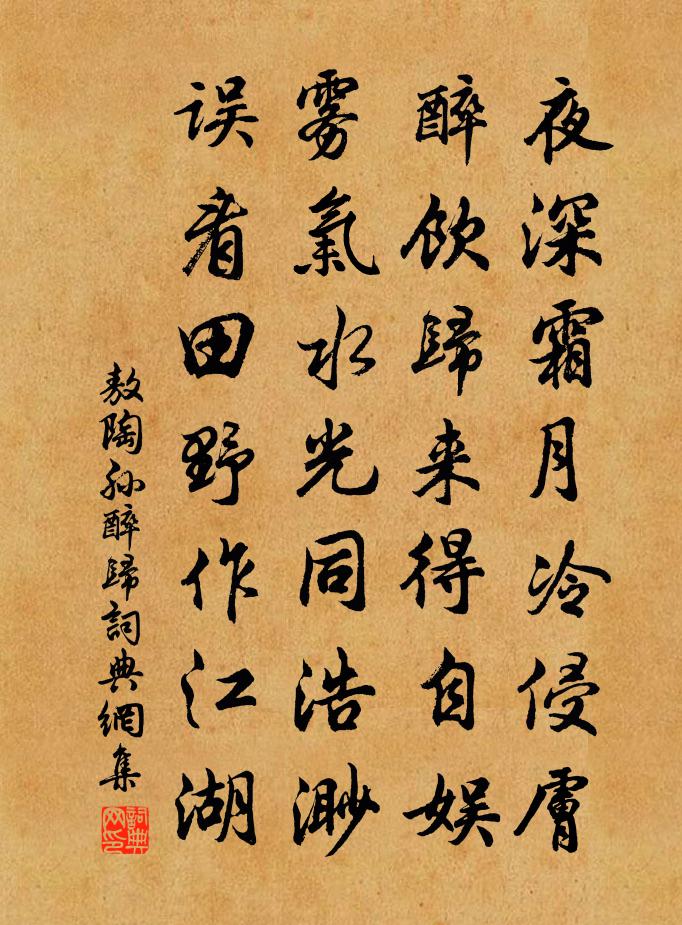 夜深霜月冷侵膚
醉飲歸来得自娱
雾氣水光同浩渺
误看田野作江湖
敖陶孙醉歸詞典網集
詞典网印